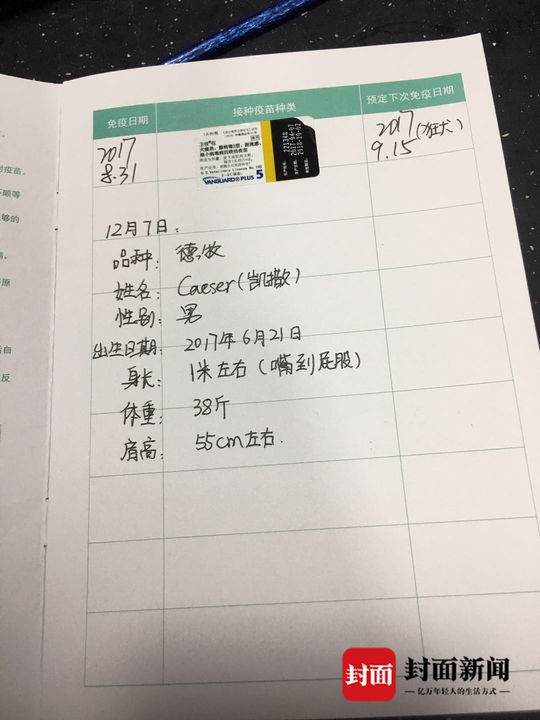 免疫日期 接种疫苗种类 预定下次免疫日期
2017
8.31
卫佳®伍
VANGUARD® PLUS 5
2017 (狂犬)
9.15
12月7日:
品种: 德牧
姓名: Caeser(凯撒)
性别: 男
出生日期: 2017年6月21日
身长: 1米左右(嘴到屁股)
体重: 38斤
肩高: 55cm左右.
疫苗。
不顺等
够的
病。
不原
后自
反
封面 封面新闻
亿万年轻人的生活方式